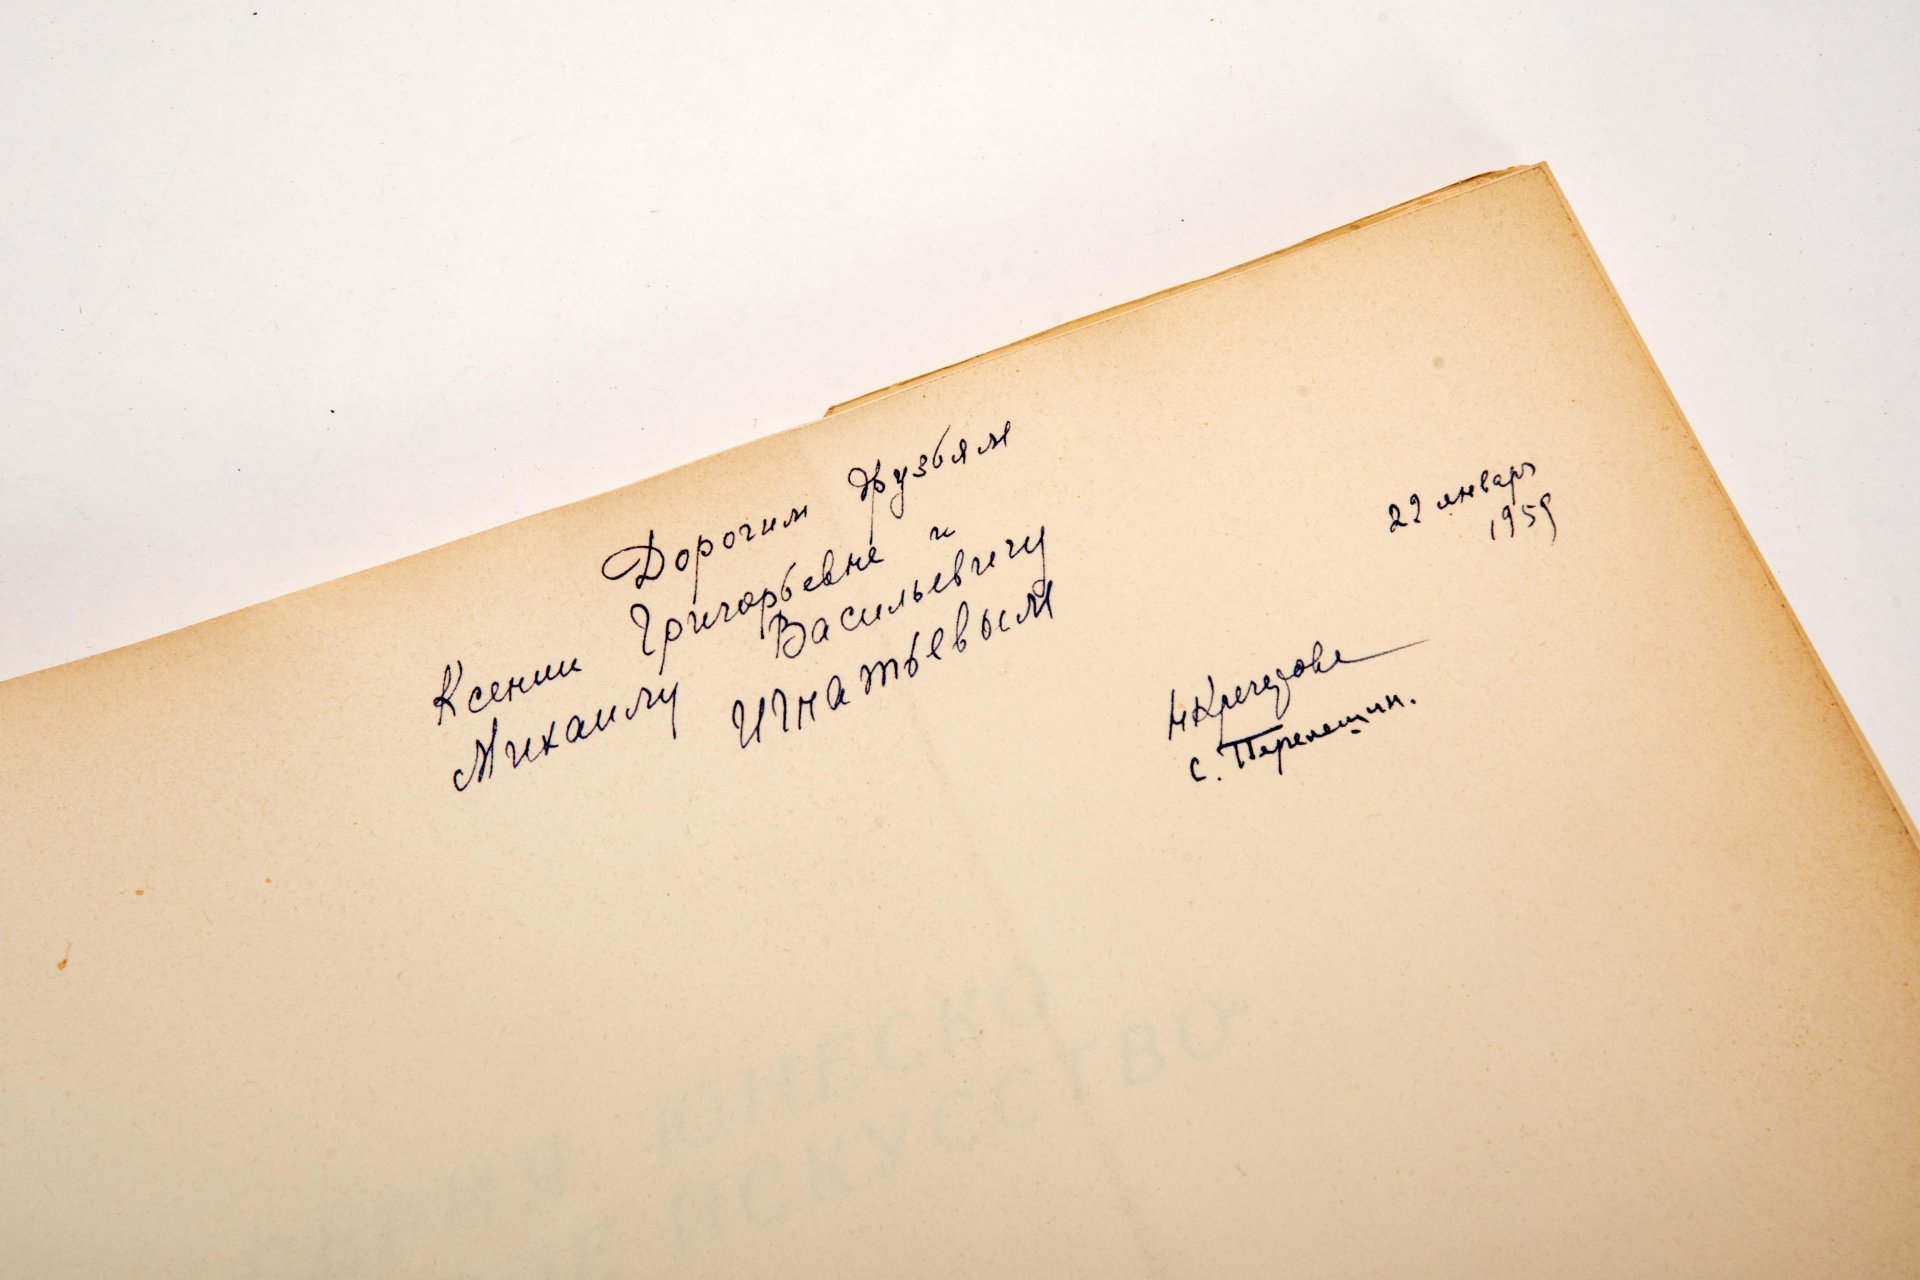 Дорогим друзьям
Ксении Григорьевне и
Михаилу Васильевичу
Игнатьевым
22 январь
1959
НКречетова
С. Перелешин.
ЮНЕСКО
ИСКУССТВО